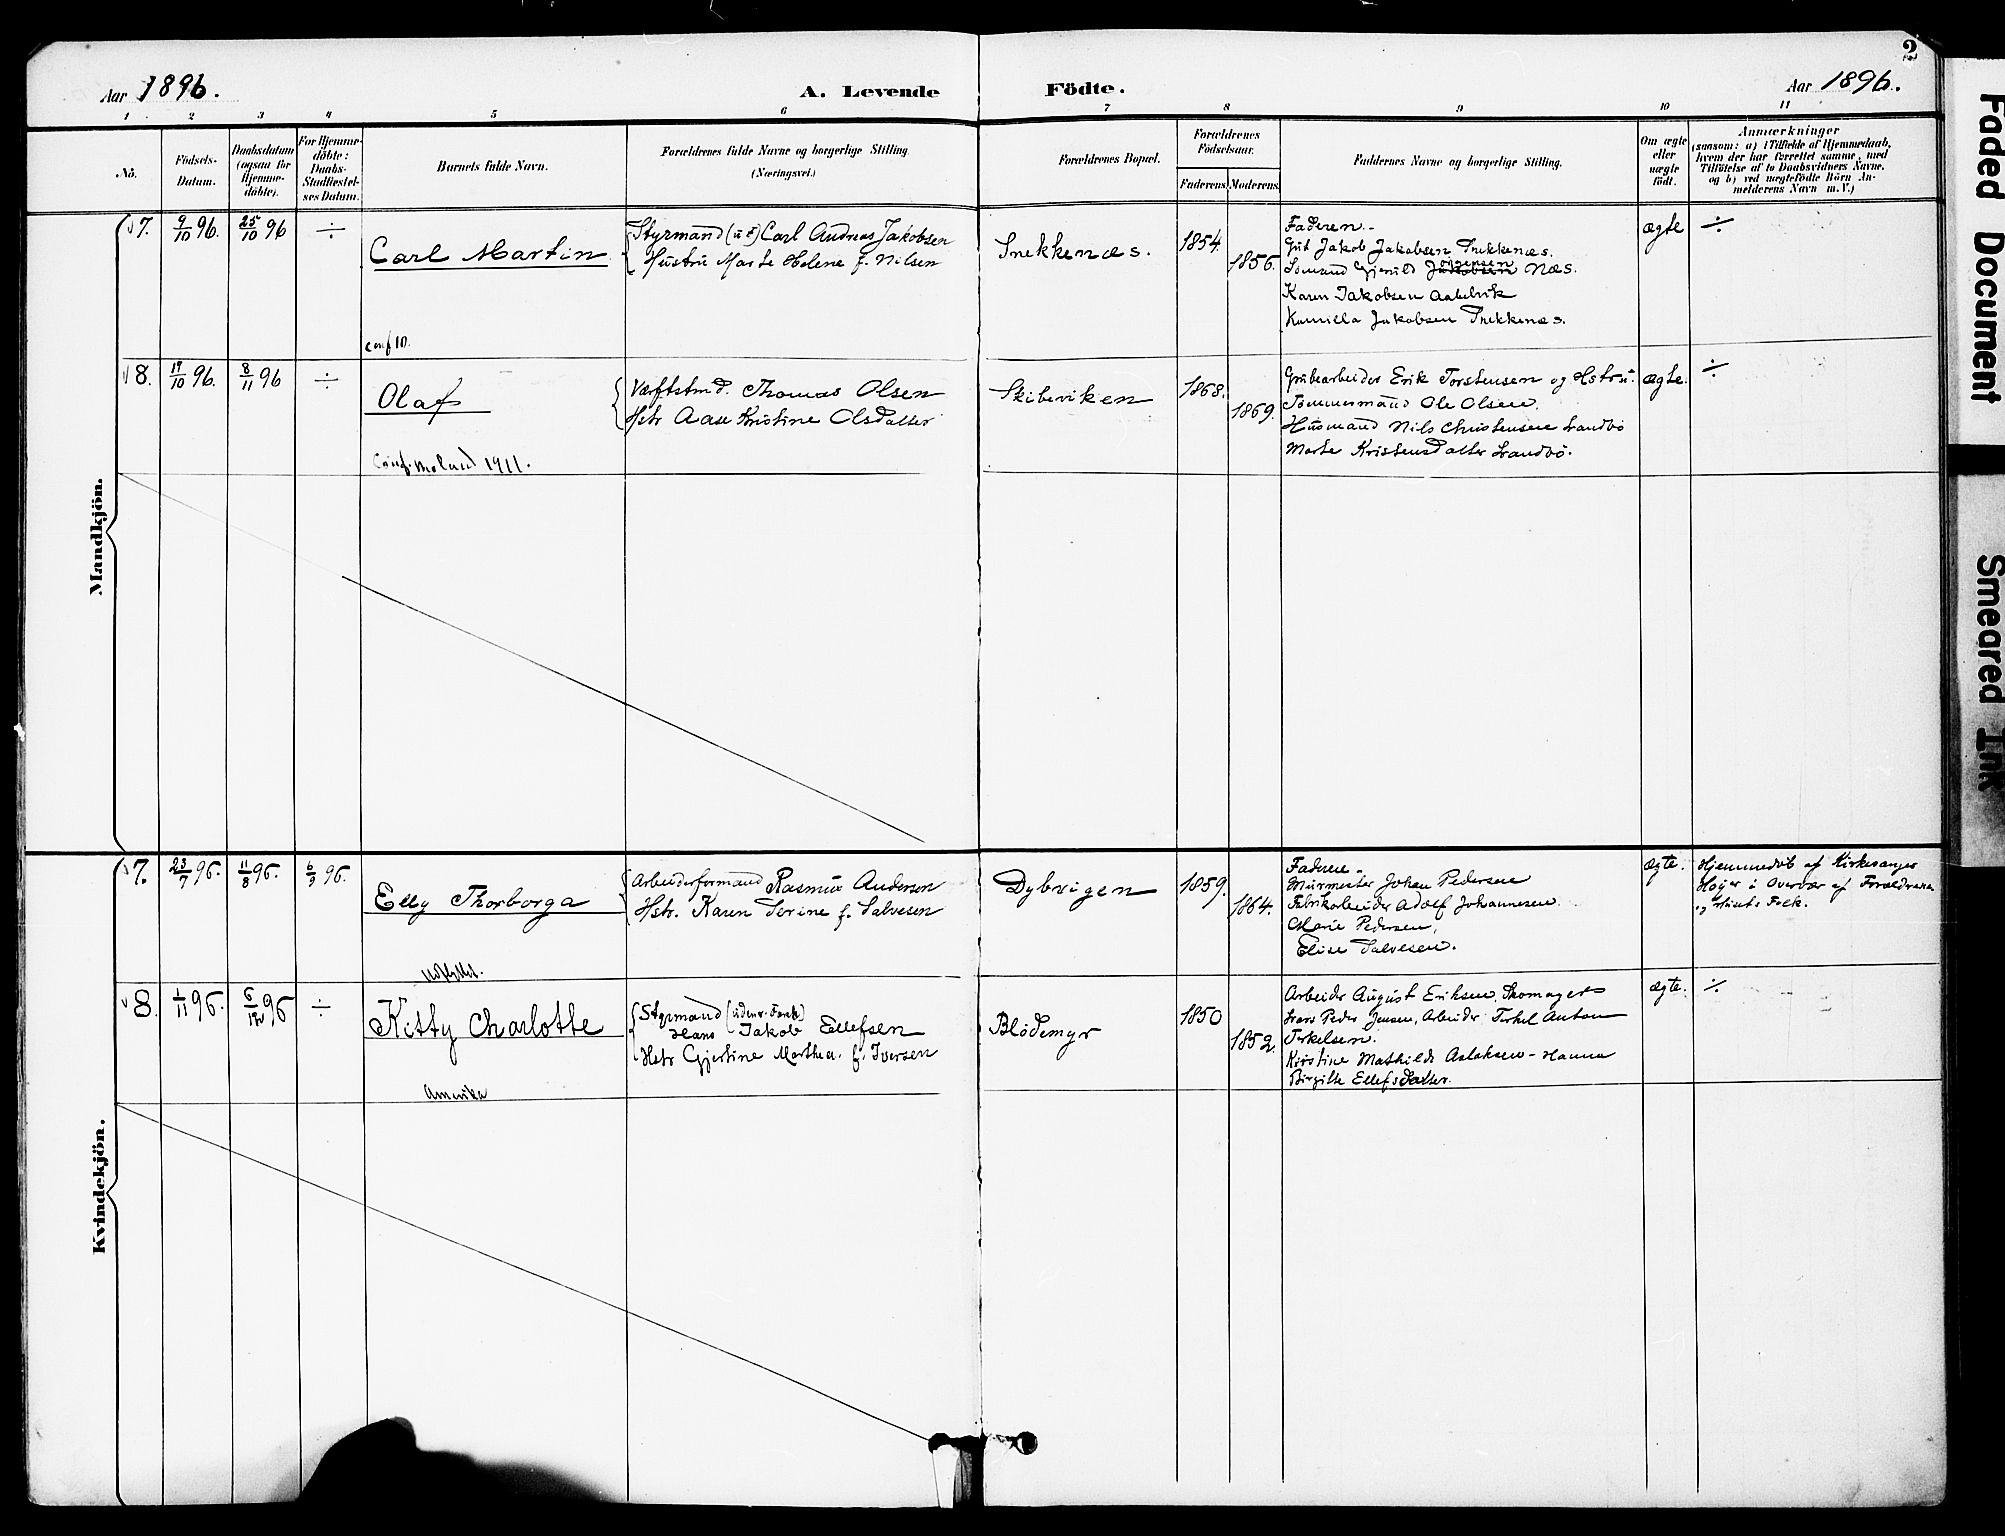 2
Aar 1896.
A. Levende Födte.
Aar 1896.
1 2 3 4 5 6 7 8 9 10 11
No.
Födsels-
Datum.
Daabsdatum
(ogsaa for
Hjemme-
döbte).
For Hjemme-
döbte:
Daabs-
Stadfæstel-
ses Datum.
Barnets fulde Navn.
Forældrenes fulde Navne og borgerlige Stilling
(Næringsvei.)
Forældrenes Bopæl.
Forældrenes
Födselsaar.
Faderens Moderens
Faddernes Navne og borgerlige Stilling.
Om ægte
eller
uægte
födt.
Anmærkninger
(saasom: a) i Tilfælde af Hjemmedaab,
hvem der har forrettet samme, med
Tilföielse af to Daabsvidners Navne,
og b) ved uægtefödte Börn An-
melderens Navn m. V.)
Mandkjön.
7. 9/10 96. 25/10 96 ÷
Carl Martin
conf
Styrmand (u. f) Carl Andreas Jakobsen
Hustru Marte Helene f. Nilsen
Snekkenæs.
1854
1856.
Faderen.
Gut Jakob Jakobsen Snekkenæs.
Sömand Jakobsen Næs.
Karen Jakobsen
Kamilla Jakobsen Snekkenæs.
ægte ÷
8. 19/10 96. 8/11 96 ÷
Olaf
Conf. Moland 1911.
Thomas Olsen
Hstr Aase Kristine Olsdatter
Skibeviken
1868.
1869.
Grubearbeider Erik Torstensen og Hstru.
Tömmermand Ole Olsen.
Husmand Nils Christensen Landbö
Marte Kristensdatter Landbö.
ægte. ÷
Kvindekjön.
7. 23/7 96. 11/8 96. 6/9 96.
Elly Thorborga
Arbeiderformand Rasmus Andersen
Hstr. Karen Serine f. Salvesen
Dybvigen
1859.
1864.
Faderen.
Murmester Johan Pedersen
Fabrikarbeider Adolf Johannesen
Marie Pedersen,
Elise Salvesen.
ægte.
Hjemmedöb af Kirkesanger
Höyer i Overvær af Forældrene
og Husets Folk.
8. 1/11 96. 6/12 96 ÷
Kitty Charlotte
Amerika
Styrmand (udenr. Fart)
Hans Jakob Ellefsen
Hstr Gjertine Marthea f. Iversen
Blödemyr
1850
1852.
Arbeider August Eriksen, Skomager
Lars Peder Jensen, Arbeider Terkel Anton
Terkelsen.
Kristine Mathilde Aslaksen - Hanna
Birgitte Ellefsdatter.
ægte. ÷
Faded Document
Smeared Ink